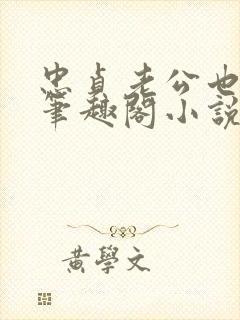 忠貞老公也
筆趣閣小說
黃學文